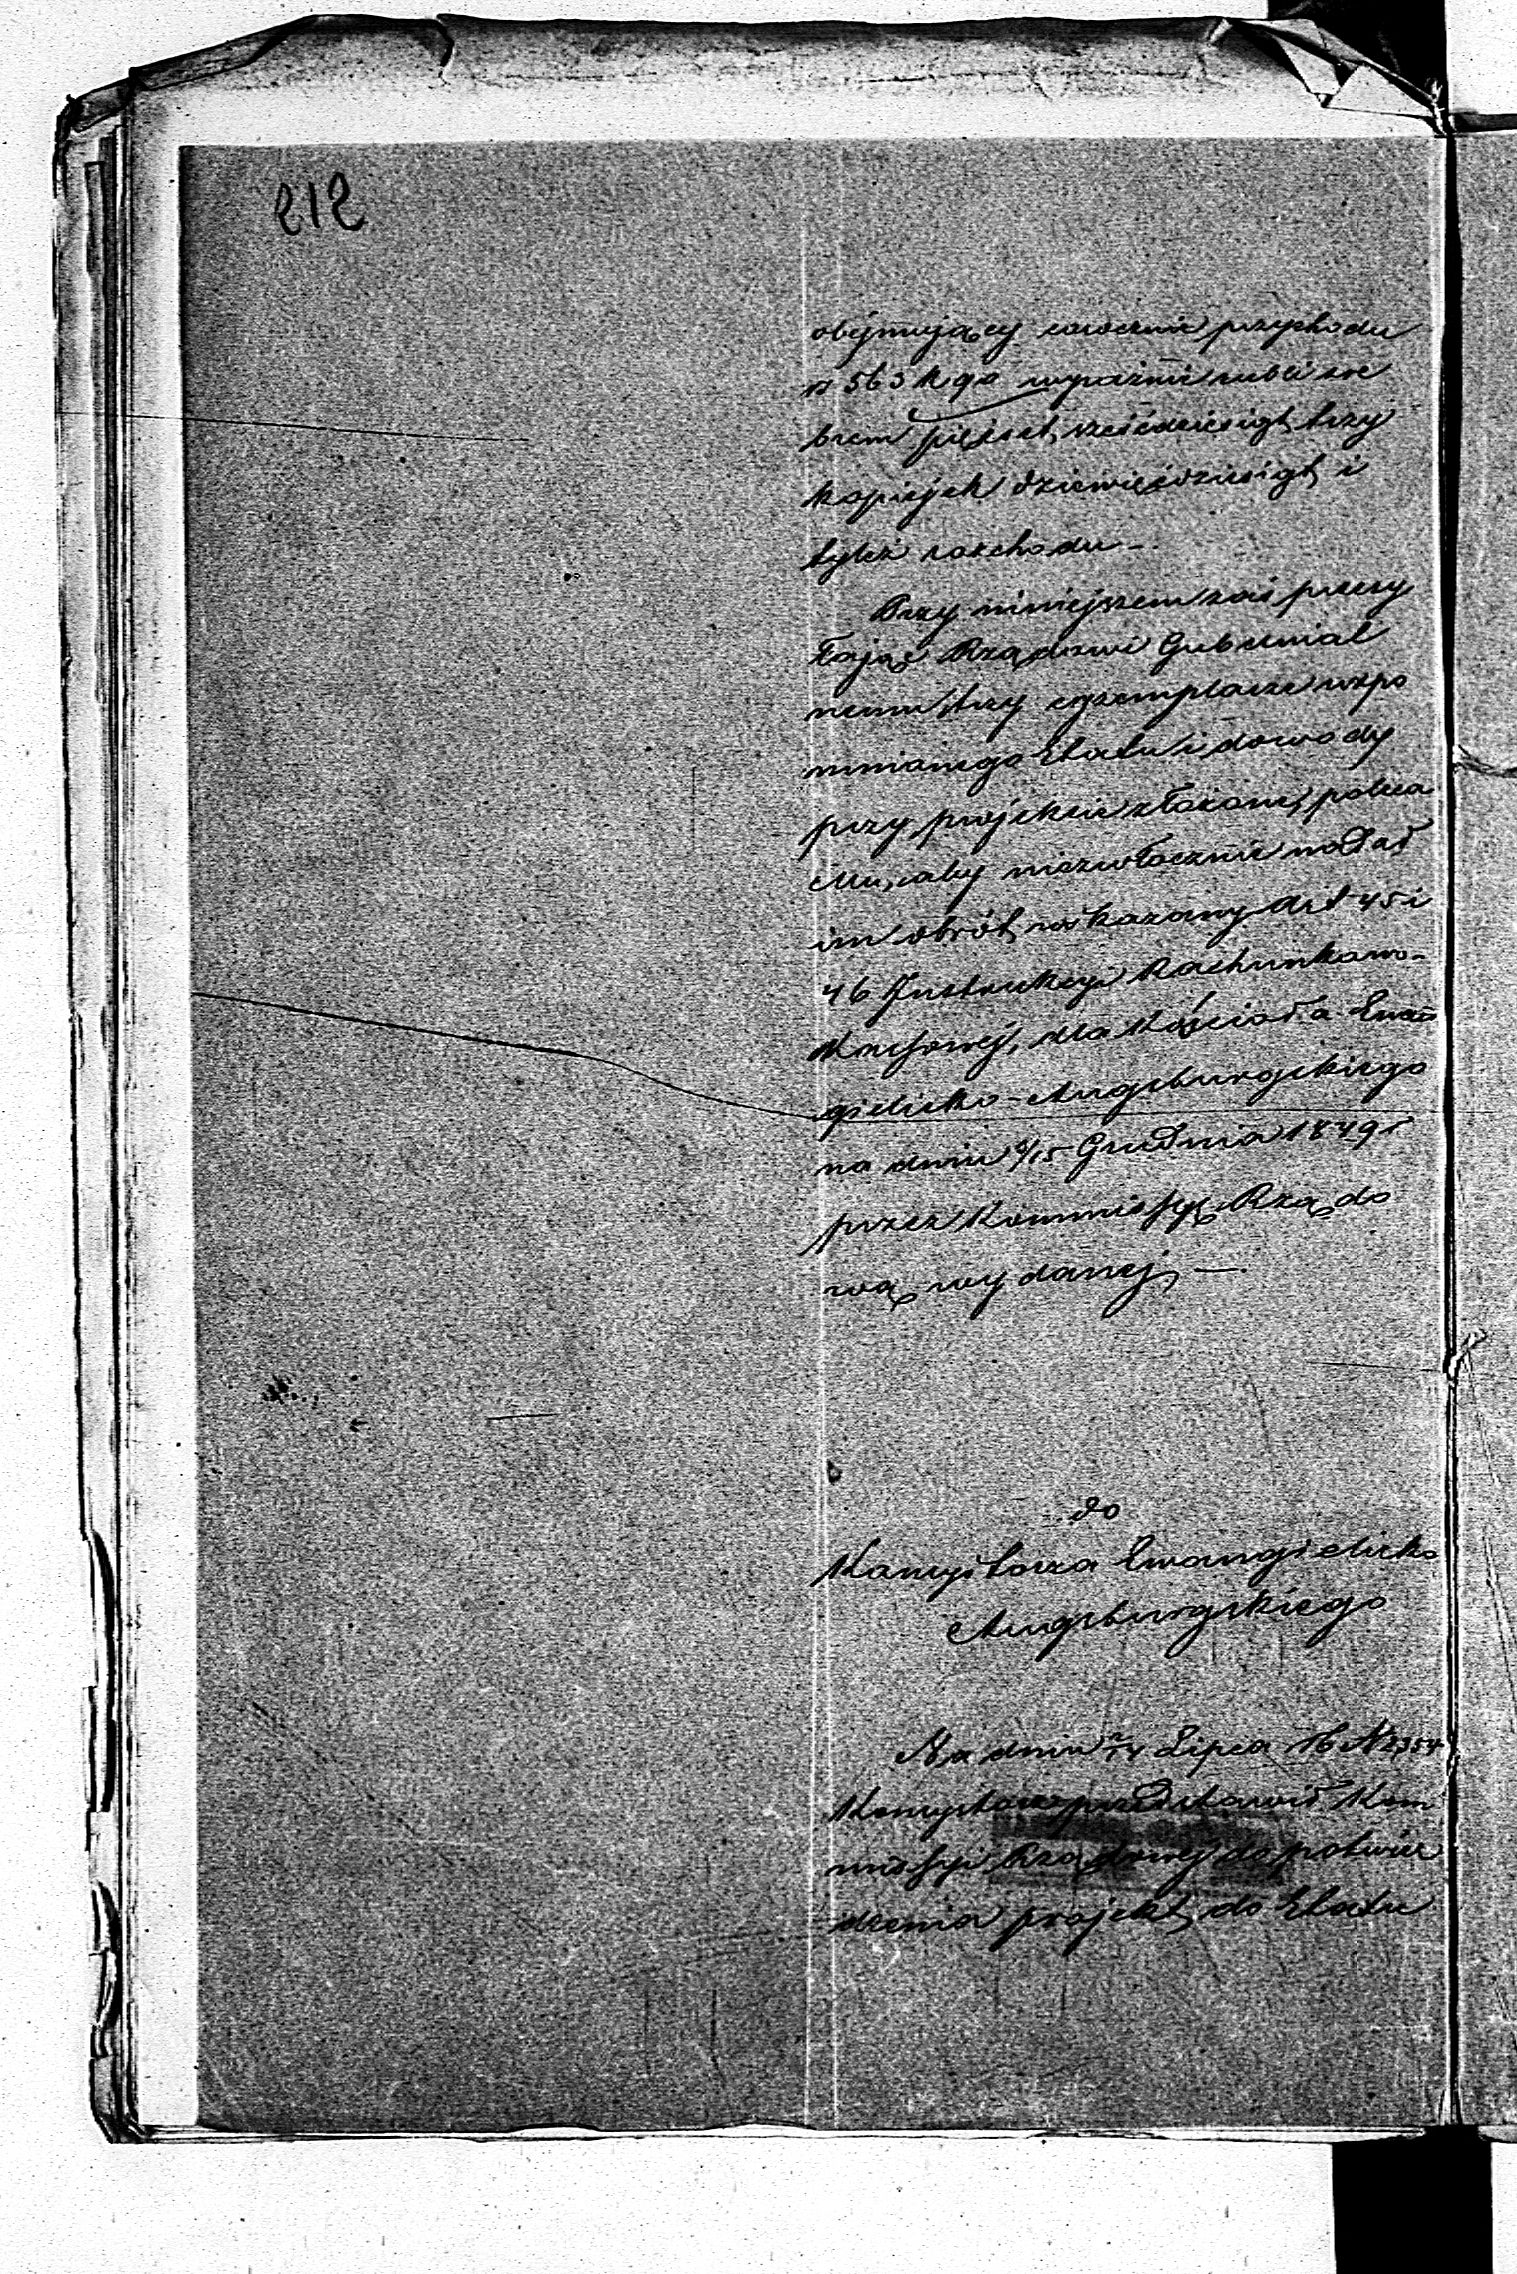 212
obéjmujący corocznie przychodu
rs 563 k 90 wyraźnie rubli sre
brem pięćset sześćdziesiąt trzy
kopiejek dziewięćdziesiąt i
tyleż rozchodu –.
Przy niniejszem zaś przesy
łając Rządowi Gubernial
nemu trzy egzemplarze wspo
mnianego Etatu i dowody
przy projekcie złożone, poleca
Mu, aby niezwłocznie nadał
im obrót wskazany Art 45 i
46 Instrukcyi Rachunkowo-
Kassowéj, dla Kościoła Ewan
gielicko-Augsburgskiego
na dniu 3/15 Grudnia 1849 r
przez Kommissyę Rządo
wą wydanéj, —.
do
Konsystorza Ewangielicko
Augsburgskiego
Na dniu 2/14 Lipca rb N 2354
Konsystorz przedstawił Kom
missyi Rządowéj do potwier
dzenia projekt do Etatu